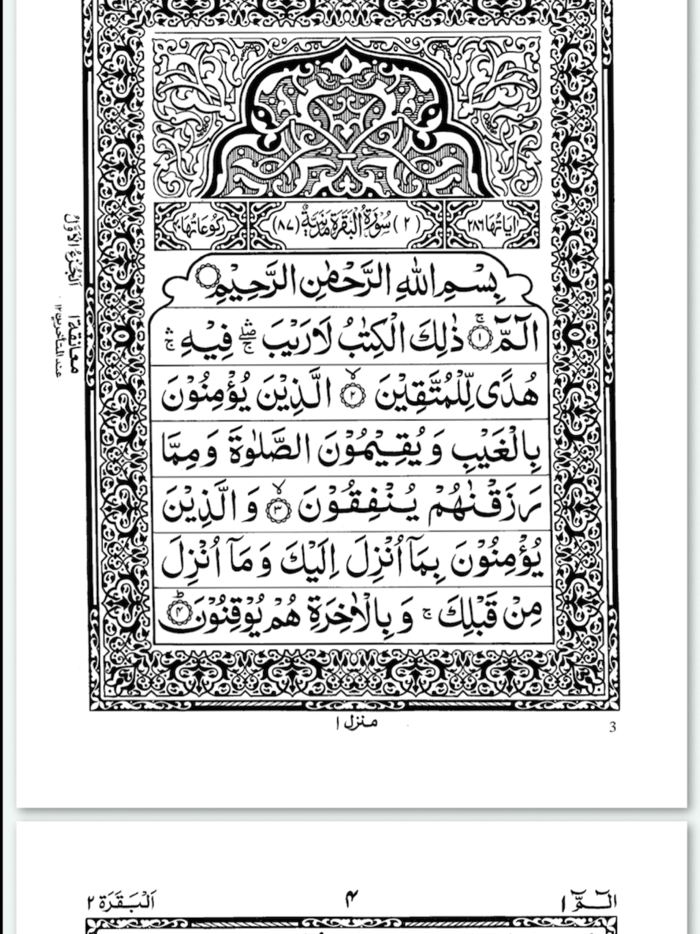 اٰيَاتُهَا ٢٨٦
(٢) سُوْرَةُ الْبَقَرَةِ مَدَنِيَّةٌ (٨٧)
رُكُوْعَاتُهَا ٤٠
بِسْمِ اللّٰهِ الرَّحْمٰنِ الرَّحِيْمِ
الٓمّٓ ۚ ١ ذٰلِكَ الْكِتٰبُ لَا رَيْبَ ۛ ۖ فِيْهِ ۛ
هُدًى لِّلْمُتَّقِيْنَ ۙ ٢ الَّذِيْنَ يُؤْمِنُوْنَ
بِالْغَيْبِ وَيُقِيْمُوْنَ الصَّلٰوةَ وَمِمَّا
رَزَقْنٰهُمْ يُنْفِقُوْنَ ۙ ٣ وَالَّذِيْنَ
يُؤْمِنُوْنَ بِمَآ اُنْزِلَ اِلَيْكَ وَمَآ اُنْزِلَ
مِنْ قَبْلِكَ ۚ وَبِالْاٰخِرَةِ هُمْ يُوْقِنُوْنَ ؕ ٤
اَلْجُزْءُ الْاَوَّلُ
معانقة ١
عند المتاخرين ١٢
منزل ١
3
الٓمّٓ ١
٤
اَلْبَقَرَة ٢